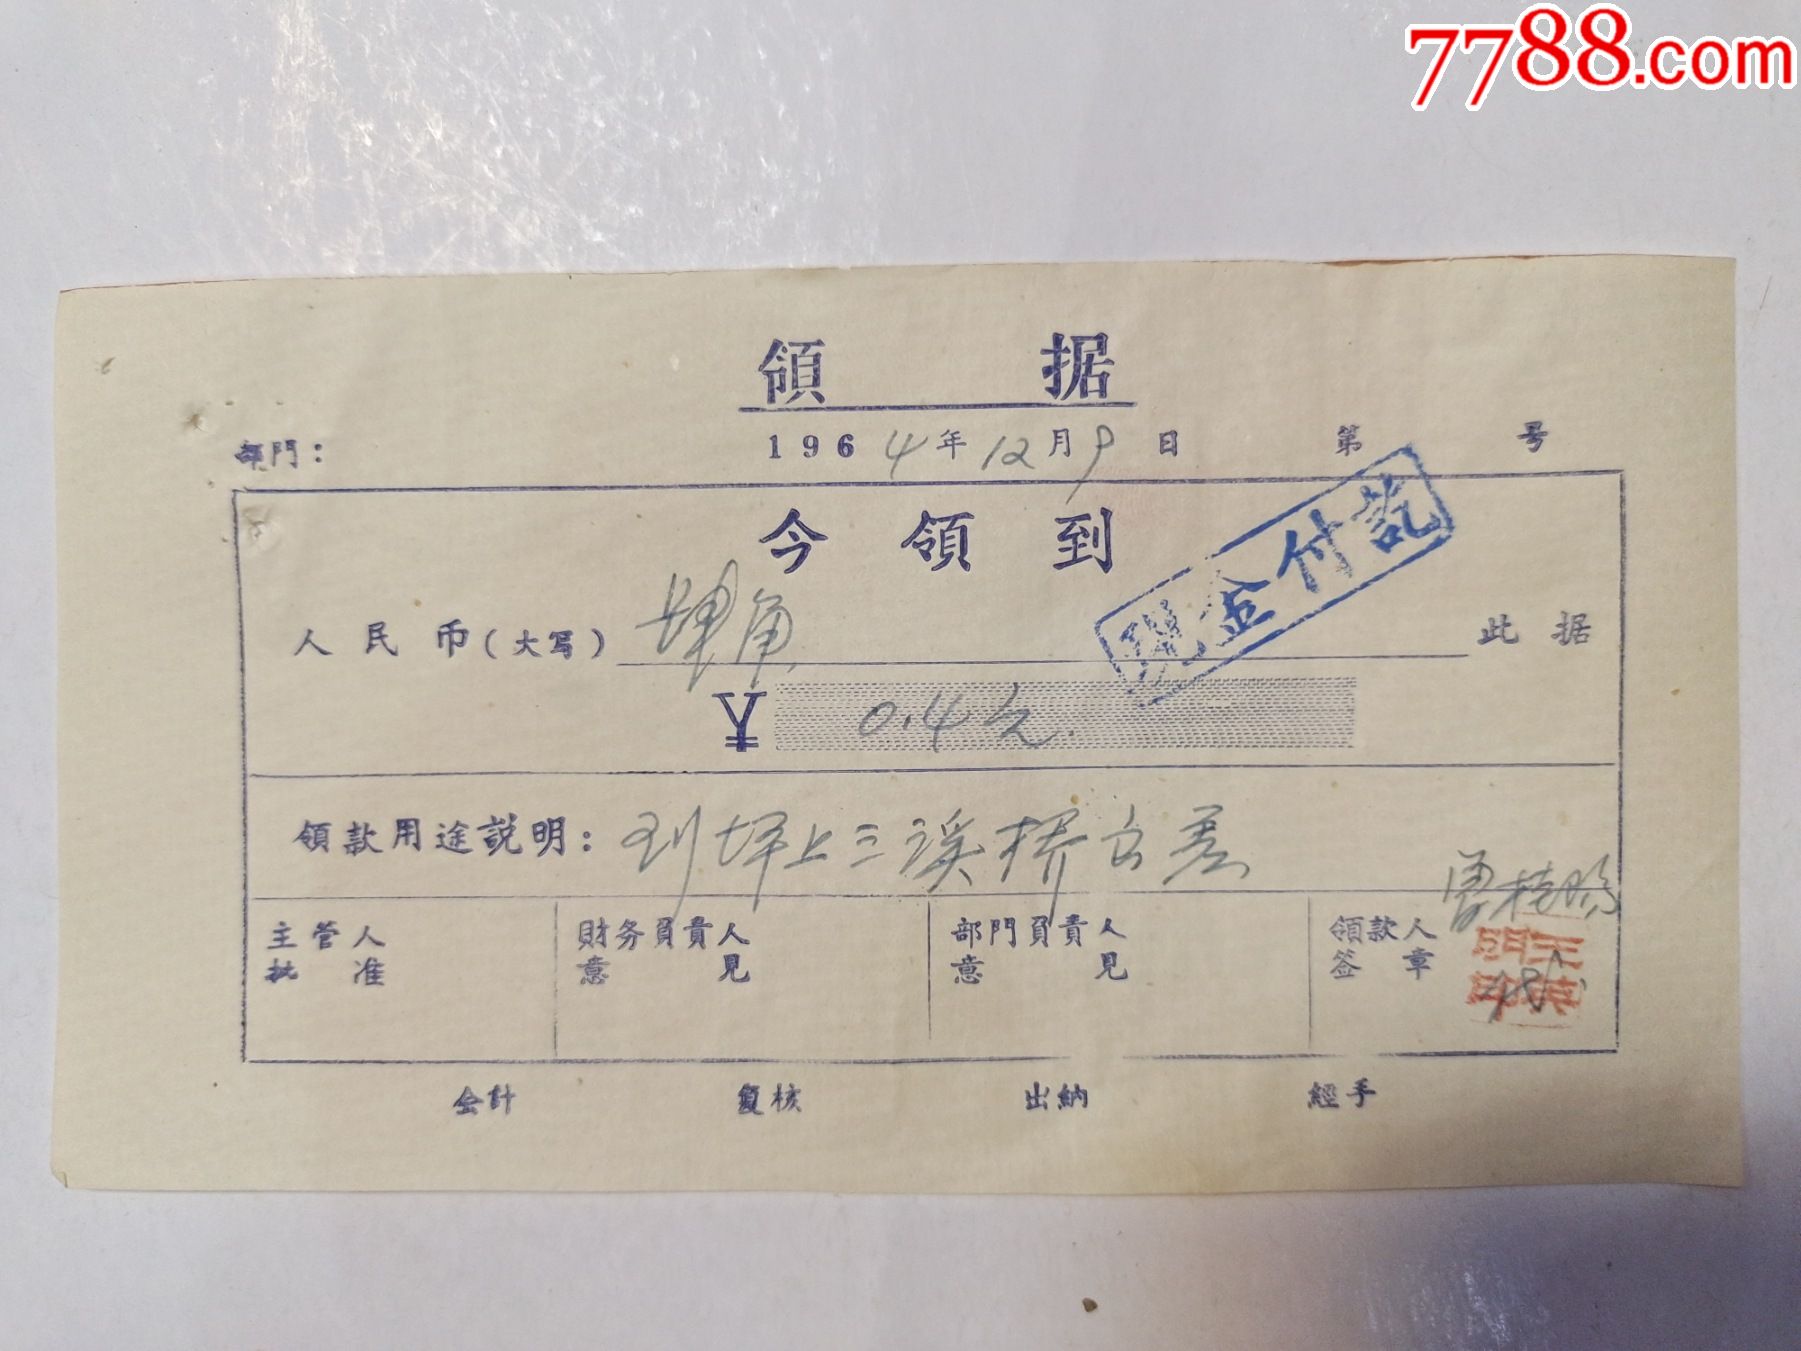 7788.com
領 据
部門： 1964年12月9日 第 号
今領到
人民币(大写) 肆角 此据
現金付訖
¥ 0.4元.
領款用途説明：到坪上三溪桥出差
主管人批准 財务負責人意見 部門負責人意見 領款人签章
会計 复核 出納 經手